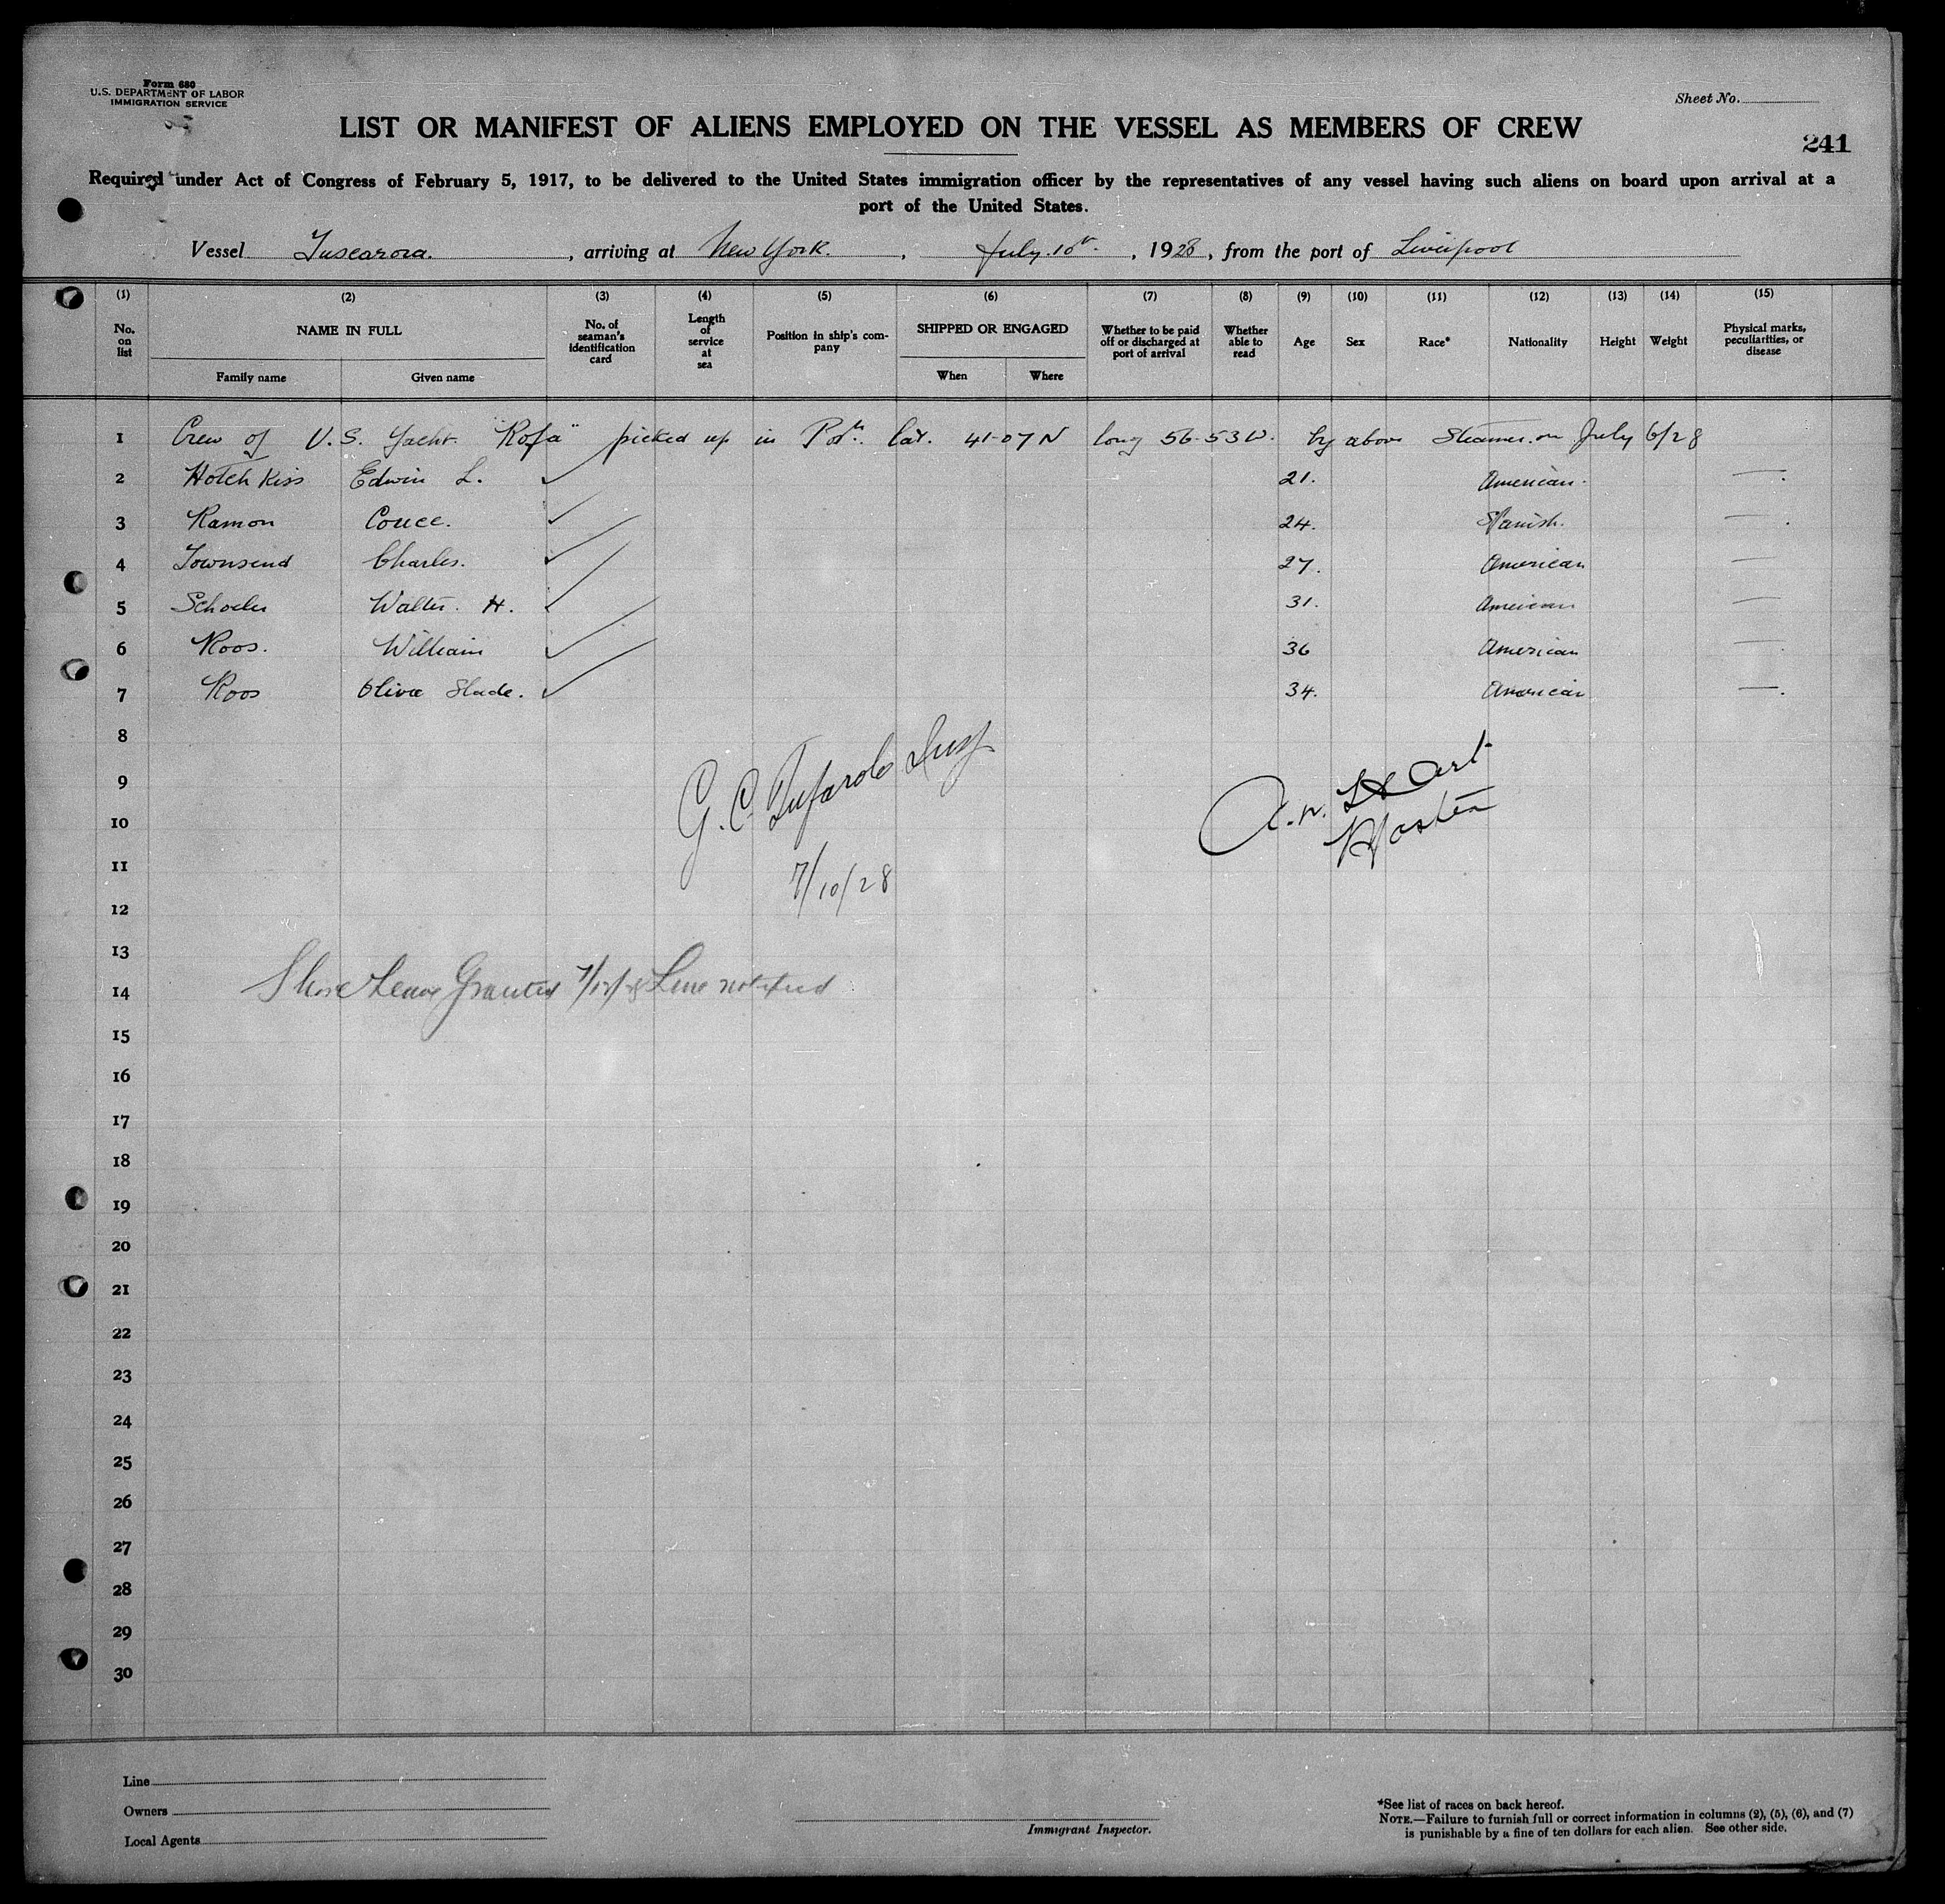 Form 680
U.S. DEPARTMENT OF LABOR
IMMIGRATION SERVICE
Sheet No.
LIST OR MANIFEST OF ALIENS EMPLOYED ON THE VESSEL AS MEMBERS OF CREW
241
Required under Act of Congress of February 5, 1917, to be delivered to the United States immigration officer by the representatives of any vessel having such aliens on board upon arrival at a
port of the United States.
Vessel Tuscarora. , arriving at New York. , July 10th. , 1928, from the port of Liverpool
(1) (2) (3) (4) (5) (6) (7) (8) (9) (10) (11) (12) (13) (14) (15)
No. on list
NAME IN FULL
Family name Given name
No. of seaman's identification card
Length of service at sea
Position in ship's company
SHIPPED OR ENGAGED
When Where
Whether to be paid off or discharged at port of arrival
Whether able to read
Age
Sex
Race*
Nationality
Height
Weight
Physical marks, peculiarities, or disease
1 Crew of U.S. Yacht. "Rofa" picked up in Posn. lat. 41-07 N long 56-53 W. by above Steamer on July 6/28
2 Hotchkiss Edwin L. 21. American.
3 Ramon Couce. 24. Spanish.
4 Townsend Charles. 27. American
5 Walter. H. 31. American
6 Roos. William 36 American
7 Roos Slade. 34. American
8
9
10
11
12
13
14
15
16
17
18
19
20
21
22
23
24
25
26
27
28
29
30
G. C. Insp
7/10/28
Master
Shore Leave Granted Line notified
Line
Owners
Local Agents
Immigrant Inspector.
*See list of races on back hereof.
NOTE.—Failure to furnish full or correct information in columns (2), (5), (6), and (7)
is punishable by a fine of ten dollars for each alien. See other side.